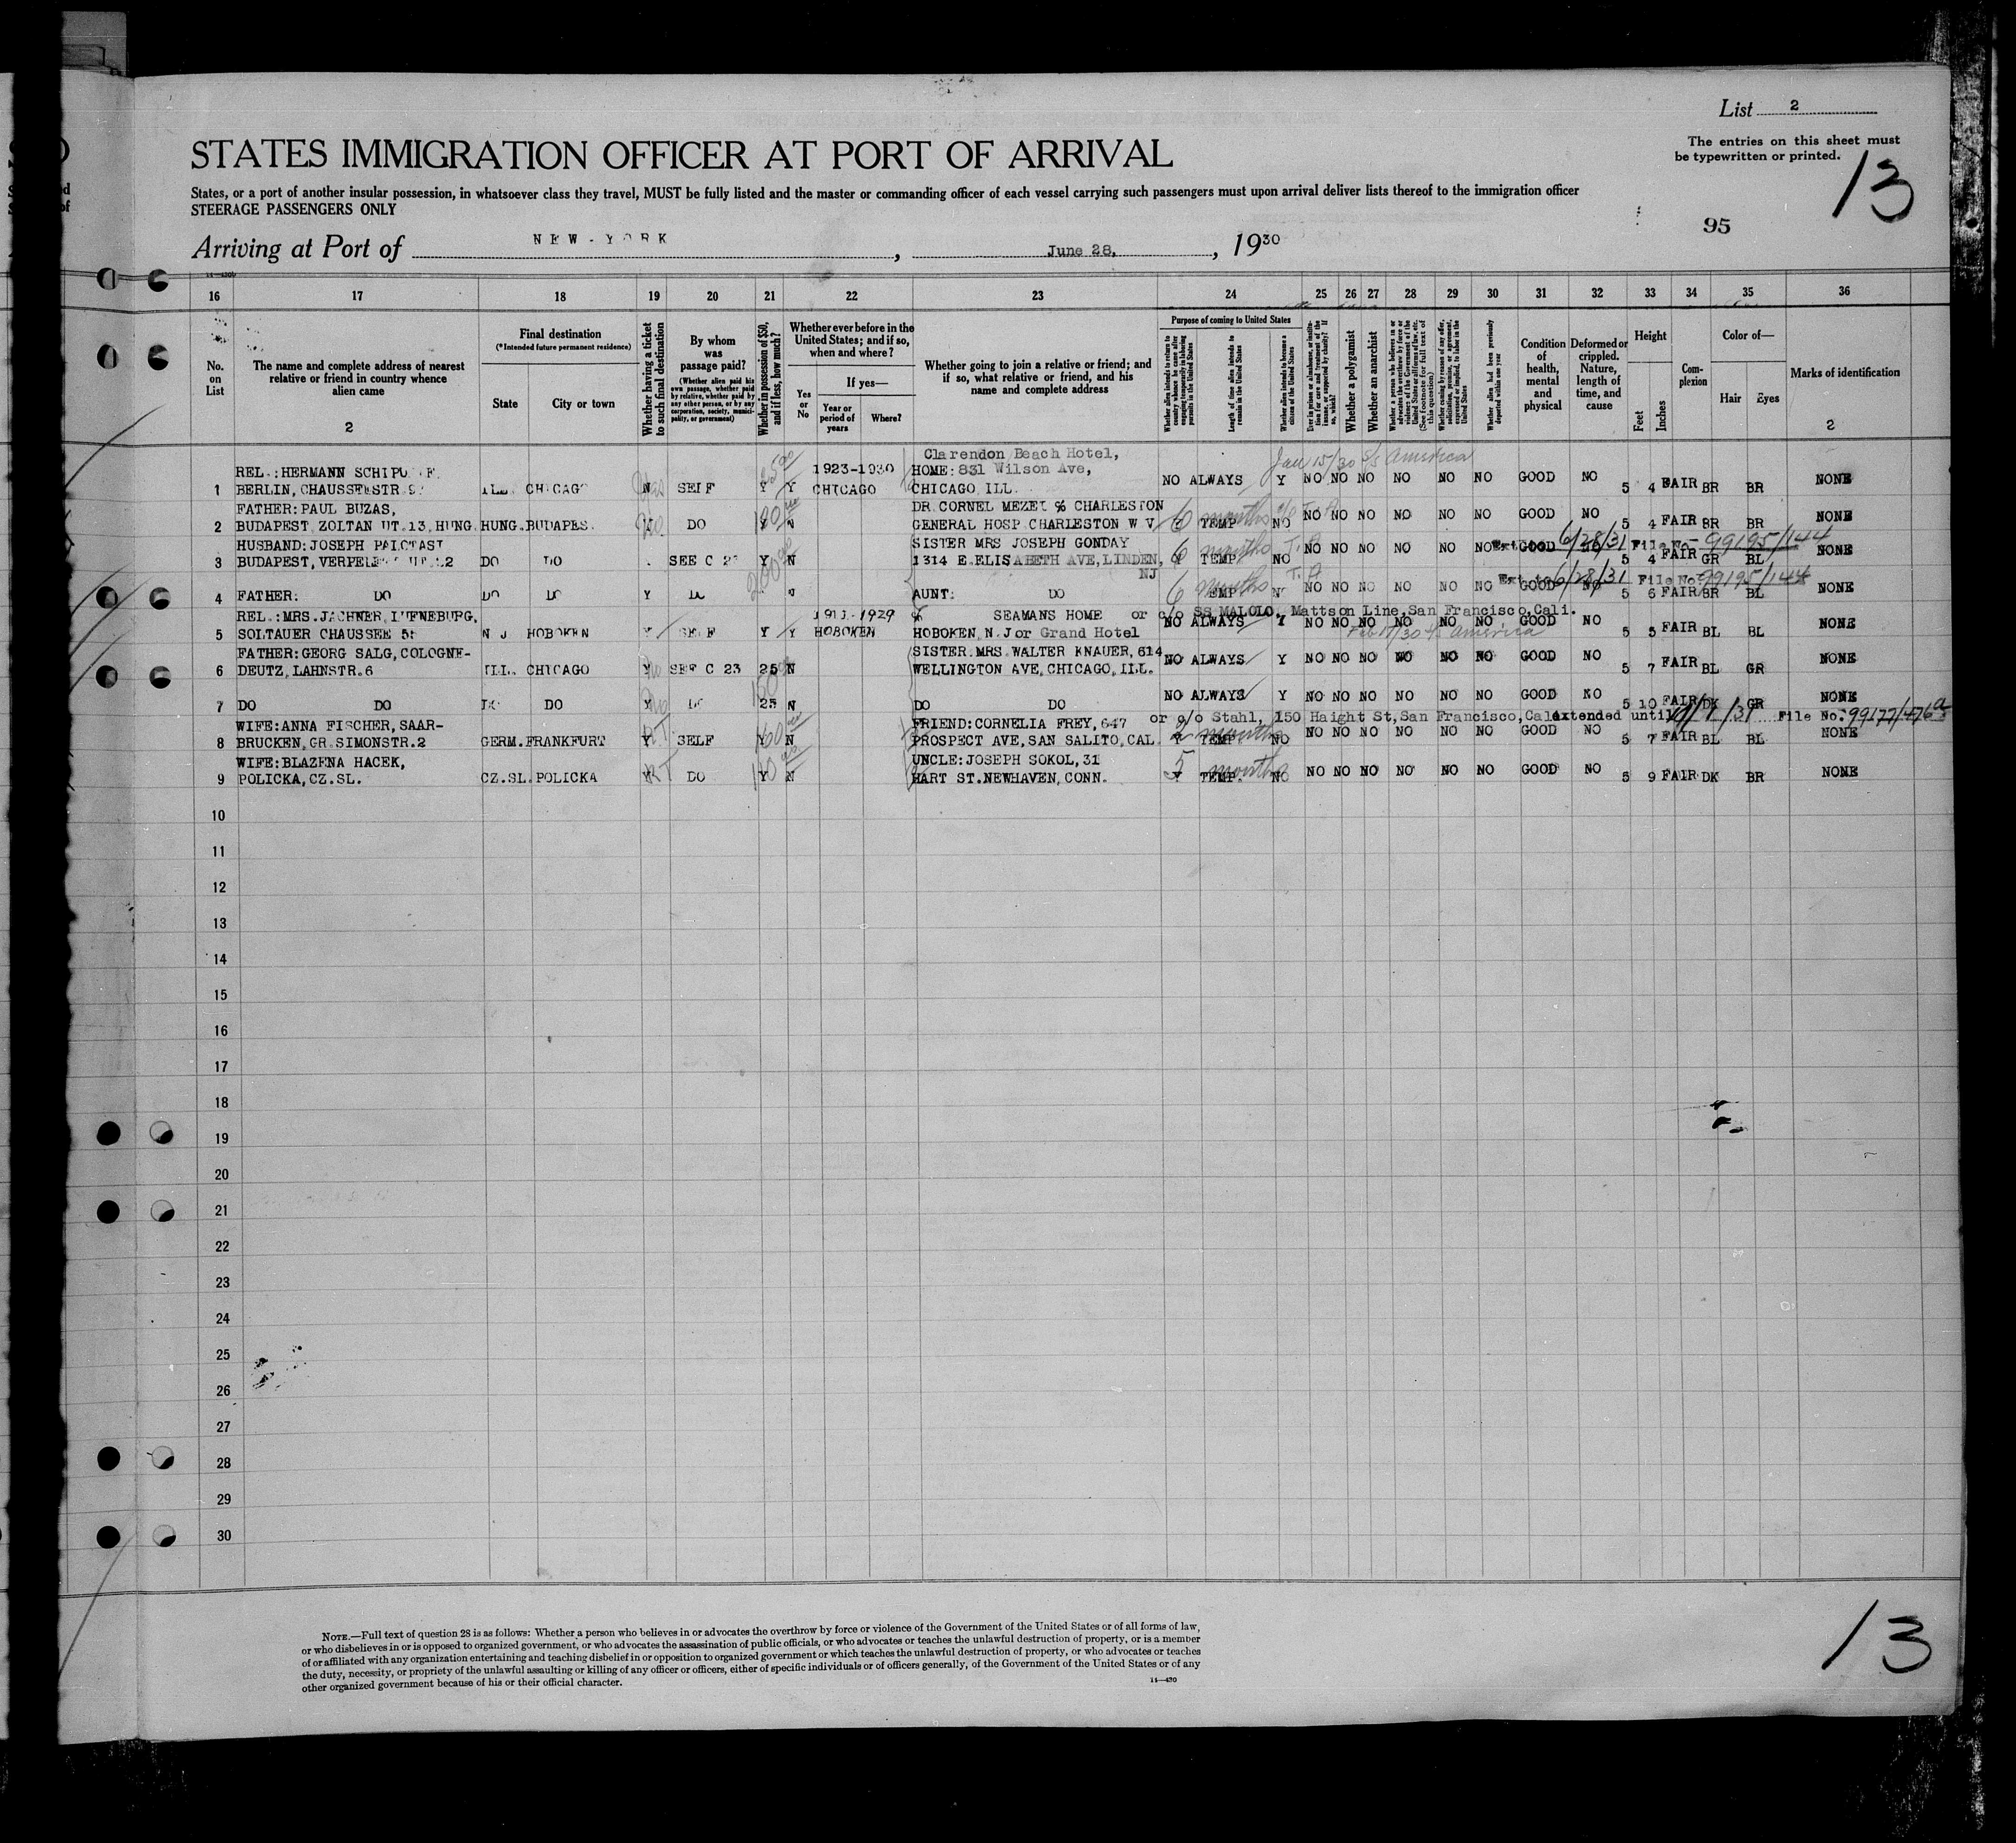 List 2
STATES IMMIGRATION OFFICER AT PORT OF ARRIVAL
The entries on this sheet must
be typewritten or printed.
13
States, or a port of another insular possession, in whatsoever class they travel, MUST be fully listed and the master or commanding officer of each vessel carrying such passengers must upon arrival deliver lists thereof to the immigration officer
STEERAGE PASSENGERS ONLY
95
Arriving at Port of NEW-YORK, June 28, 1930
16 17 18 19 20 21 22 23 24 25 26 27 28 29 30 31 32 33 34 35 36
No. on List
The name and complete address of nearest relative or friend in country whence alien came
2
Final destination
(*Intended future permanent residence)
State
City or town
Whether having a ticket to such final destination
By whom was passage paid?
(Whether alien paid his own passage, whether paid by relative, whether paid by any other person, or by any corporation, society, municipality, or government)
Whether in possession of $50, and if less, how much?
Whether ever before in the United States; and if so, when and where?
Yes or No
If yes—
Year or period of years
Where?
Whether going to join a relative or friend; and if so, what relative or friend, and his name and complete address
Purpose of coming to United States
Whether alien intends to return to country whence he came after engaging temporarily in laboring pursuits in the United States
Length of time alien intends to remain in the United States
Whether alien intends to become a citizen of the United States
Ever in prison or almshouse, or institution for care and treatment of the insane, or supported by charity? If so, which?
Whether a polygamist
Whether an anarchist
Whether a person who believes in or advocates the overthrow by force or violence of the Government of the United States or all forms of law, etc. (See footnote for full text of this question)
Whether coming by reason of any offer, solicitation, promise, or agreement, expressed or implied, to labor in the United States
Whether alien had been previously deported within one year
Condition of health, mental and physical
Deformed or crippled. Nature, length of time, and cause
Height
Feet
Inches
Complexion
Color of—
Hair
Eyes
Marks of identification
2
Clarendon Beach Hotel, Jan 15/30 S/s America
REL.: HERMANN 1923-1930 HOME: 831 Wilson Ave,
1 BERLIN, CHAUSSEESTR. ILL. CHICAGO N SELF Y Y CHICAGO CHICAGO ILL. NO ALWAYS Y NO NO NO NO NO NO GOOD NO 5 4 FAIR BR BR NONE
FATHER: PAUL BUZAS, DR. CORNEL MEZEI % CHARLESTON
2 BUDAPEST, ZOLTAN UT.13, HUNG. HUNG. BUDAPES. DO Y N GENERAL HOSP CHARLESTON W V 6 months Y TEMP NO NO NO NO NO NO NO GOOD NO 5 4 FAIR BR BR NONE
HUSBAND: JOSEPH SISTER MRS JOSEPH GONDAY Ext. to 6/28/31 File No- 99195/144
3 BUDAPEST, DO DO SEE C 23 Y N 1314 E. ELISABETH AVE, LINDEN, NJ 6 months Y TEMP. NO NO NO NO NO NO NO GOOD NO 5 4 FAIR GR BL NONE
Ext. to 6/28/31 File No. 99195/144
4 FATHER: DO DO DO Y DO 200 N AUNT: DO 6 months TEMP N NO NO NO NO NO NO GOOD NO 5 6 FAIR BR BL NONE
REL.: MRS. JACHNER, LUENEBURG, 1929 SEAMANS HOME or c/o SS MALOLO, Mattson Line, San Francisco, Cali.
5 SOLTAUER CHAUSSEE N J HOBOKEN Y SELF Y Y HOBOKEN HOBOKEN, N.J or Grand Hotel NO ALWAYS Y NO NO NO NO NO NO GOOD NO 5 5 FAIR BL BL NONE
FATHER: GEORG SALG, COLOGNE- SISTER: MRS. WALTER KNAUER, 614
6 DEUTZ, LAHNSTR.6 ILL. CHICAGO Y SEE C 23 25 N WELLINGTON AVE, CHICAGO, ILL. NO ALWAYS Y NO NO NO NO NO NO GOOD NO 5 7 FAIR BL GR NONE
7 DO DO DO DO DO 25 N DO DO NO ALWAYS Y NO NO NO NO NO NO GOOD NO 5 10 FAIR DK GR NONE
WIFE: ANNA FISCHER, SAAR- FRIEND: CORNELIA FREY, 647 or c/o Stahl, 150 Haight St, San Francisco, Cal. extended until File No.
8 BRUCKEN, GR. SIMONSTR.2 GERM. FRANKFURT Y SELF Y N PROSPECT AVE, SAN SALITO, CAL. 2 months Y TEMP NO NO NO NO NO NO NO GOOD NO 5 7 FAIR BL BL NONE
WIFE: BLAZENA HACEK, UNCLE: JOSEPH SOKOL, 31
9 POLICKA, CZ.SL. CZ.SL. POLICKA Y RT DO Y N HART ST. NEWHAVEN, CONN. 5 months Y TEMP. NO NO NO NO NO NO NO GOOD NO 5 9 FAIR DK BR NONE
10
11
12
13
14
15
16
17
18
19
20
21
22
23
24
25
26
27
28
29
30
NOTE.—Full text of question 28 is as follows: Whether a person who believes in or advocates the overthrow by force or violence of the Government of the United States or of all forms of law,
or who disbelieves in or is opposed to organized government, or who advocates the assassination of public officials, or who advocates or teaches the unlawful destruction of property, or is a member
of or affiliated with any organization entertaining and teaching disbelief in or opposition to organized government or which teaches the unlawful destruction of property, or who advocates or teaches
the duty, necessity, or propriety of the unlawful assaulting or killing of any officer or officers, either of specific individuals or of officers generally, of the Government of the United States or of any
other organized government because of his or their official character.
14—430
13